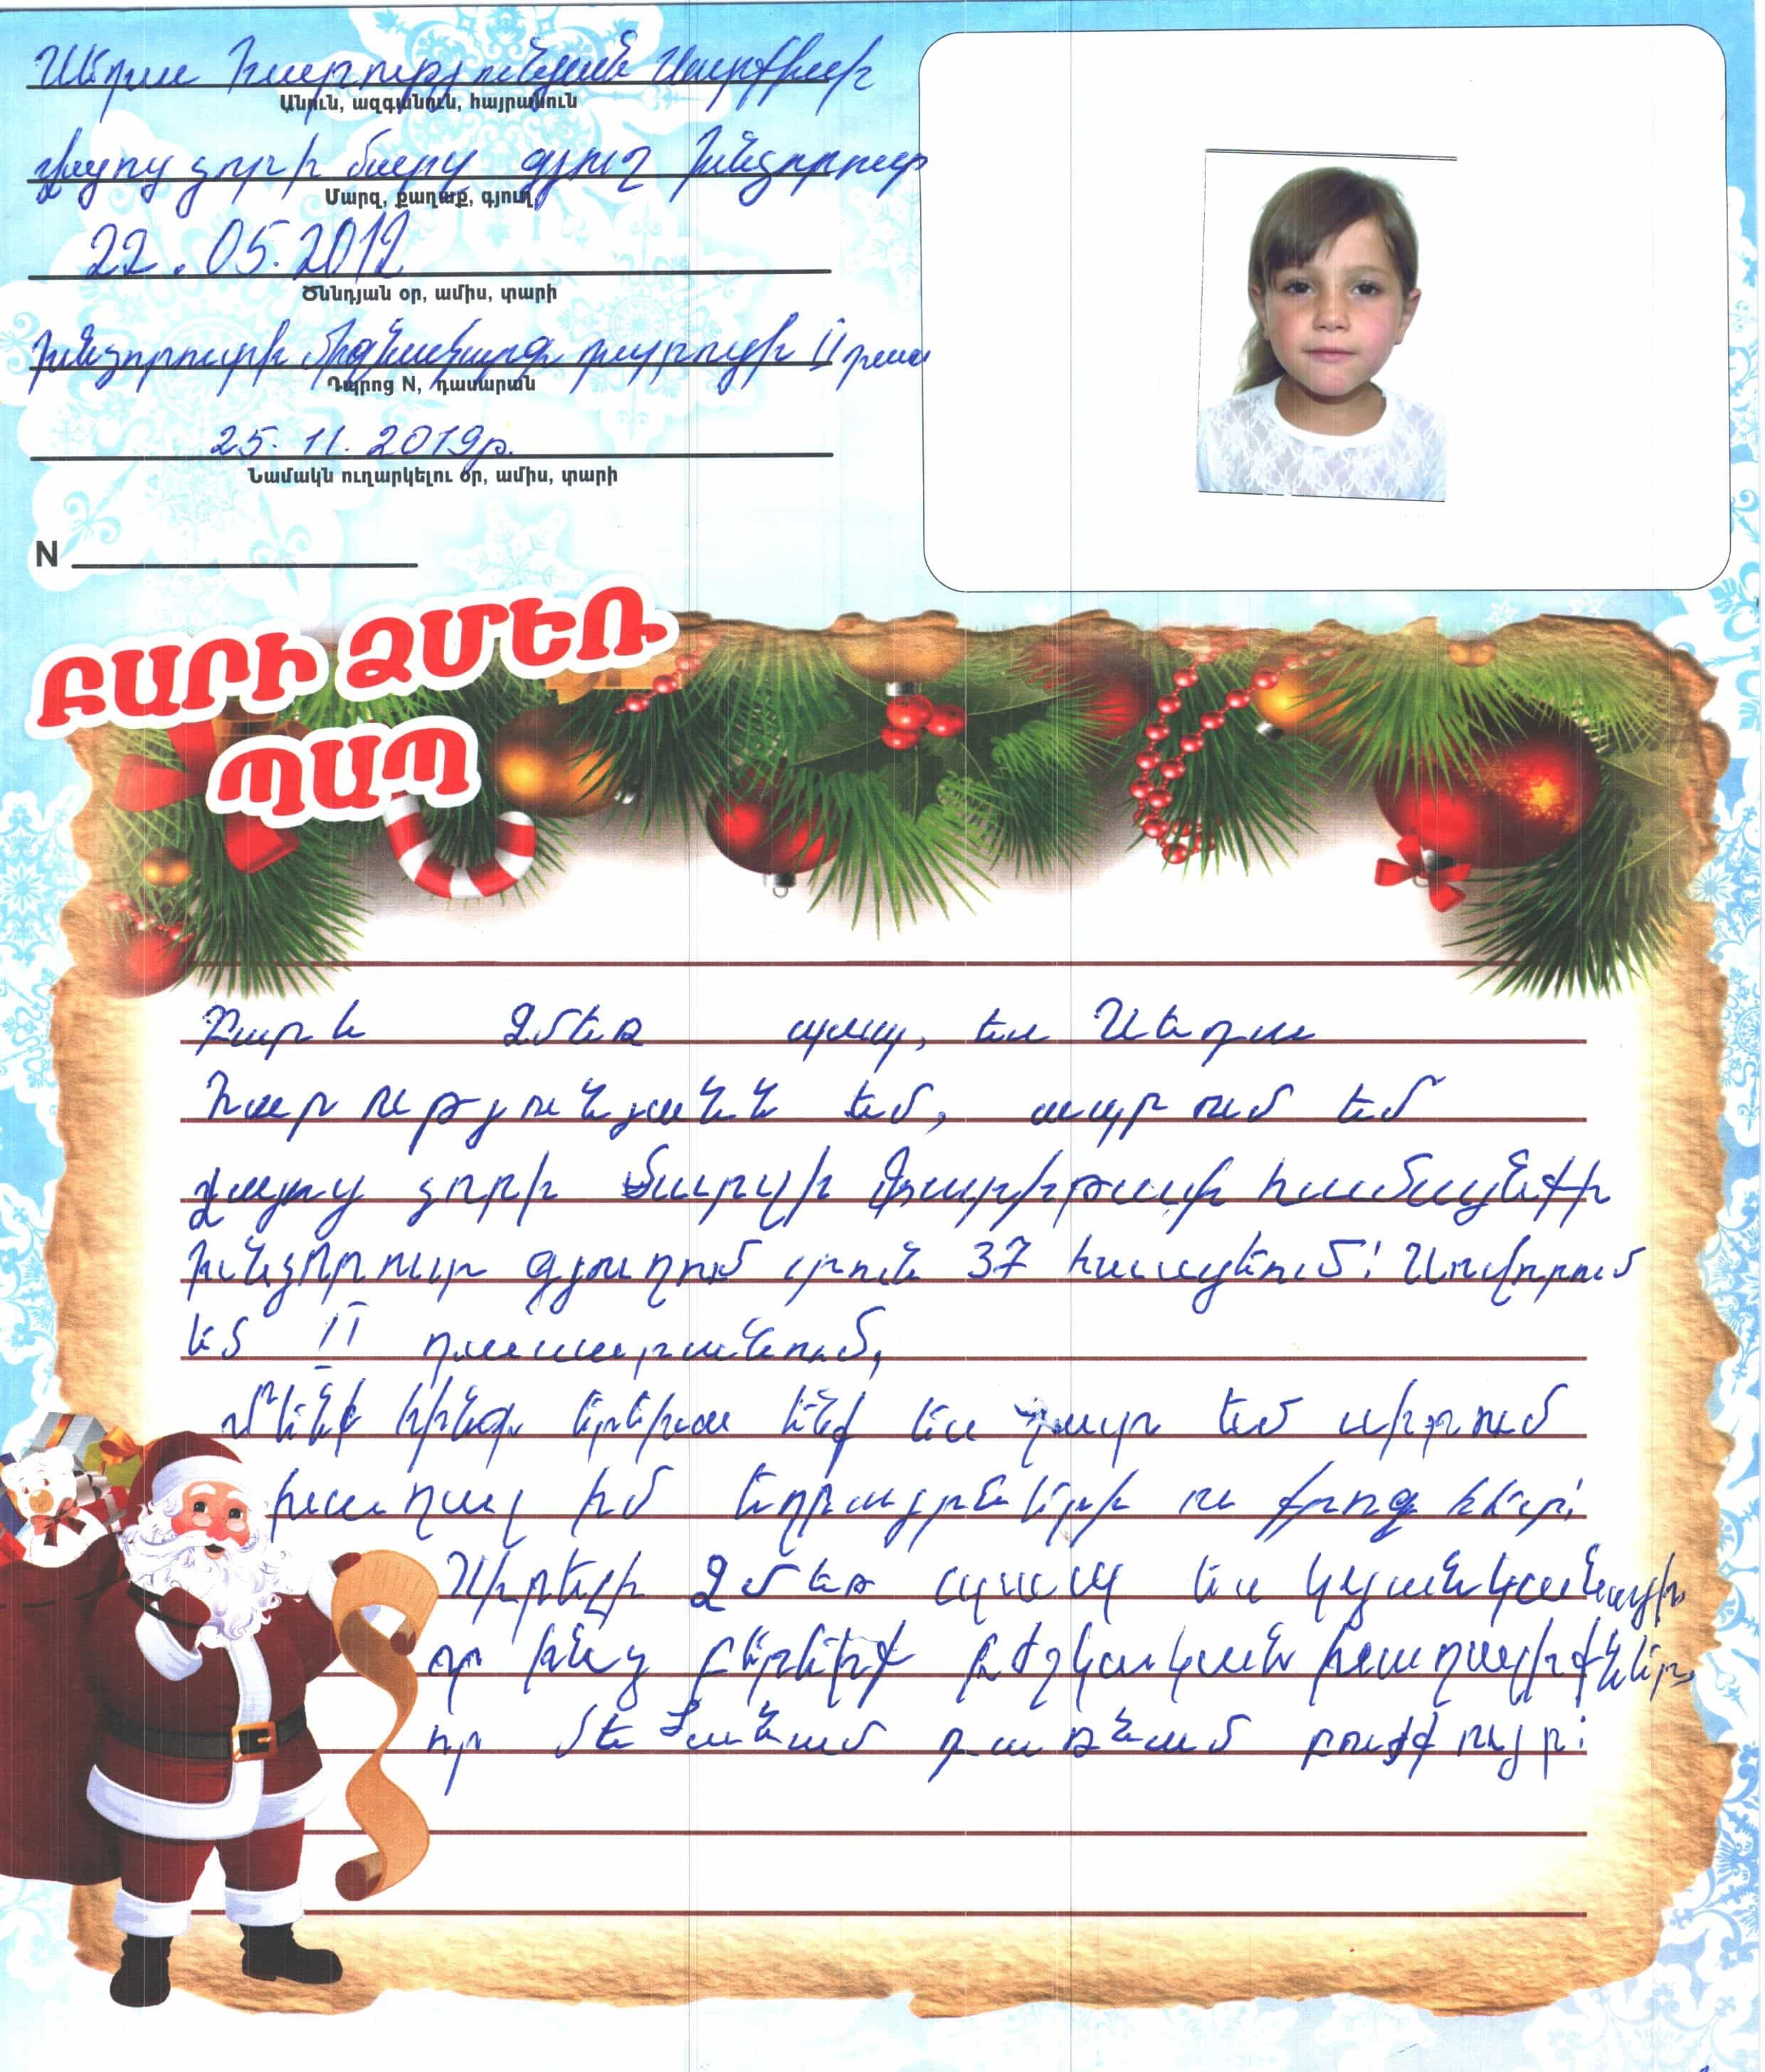 Սեդա Հարությունյան Սարգիսի
Անուն, ազգանուն, հայրանուն
Վայոց ձորի մարզ գյուղ Խնձորուտ
Մարզ, քաղաք, գյուղ
22.05.2012
Ծննդյան օր, ամիս, տարի
Խնձորուտի միջնակարգ դպրոցի II դաս
Դպրոց N, դասարան
25.11.2019թ.
Նամակն ուղարկելու օր, ամիս, տարի
N
ԲԱՐԻ ՁՄԵՌ
ՊԱՊ
Բարև Ձմեռ պապ, ես Սեդա
Հարությունյանն եմ, ապրում եմ
Վայոց ձորի մարզի Զառիթափ համայնքի
Խնձորուտ գյուղում տուն 37 հասցեում: Սովորում
եմ II դասարանում,
Մենք հինգ երեխա ենք ես շատ եմ սիրում
խաղալ իմ եղբայրների ու քրոջ հետ:
Սիրելի Ձմեռ պապ ես կցանկանայի
որ ինձ բերեիր բժշկական խաղալիքներ,
որ մեծանամ դառնամ բուժքույր: